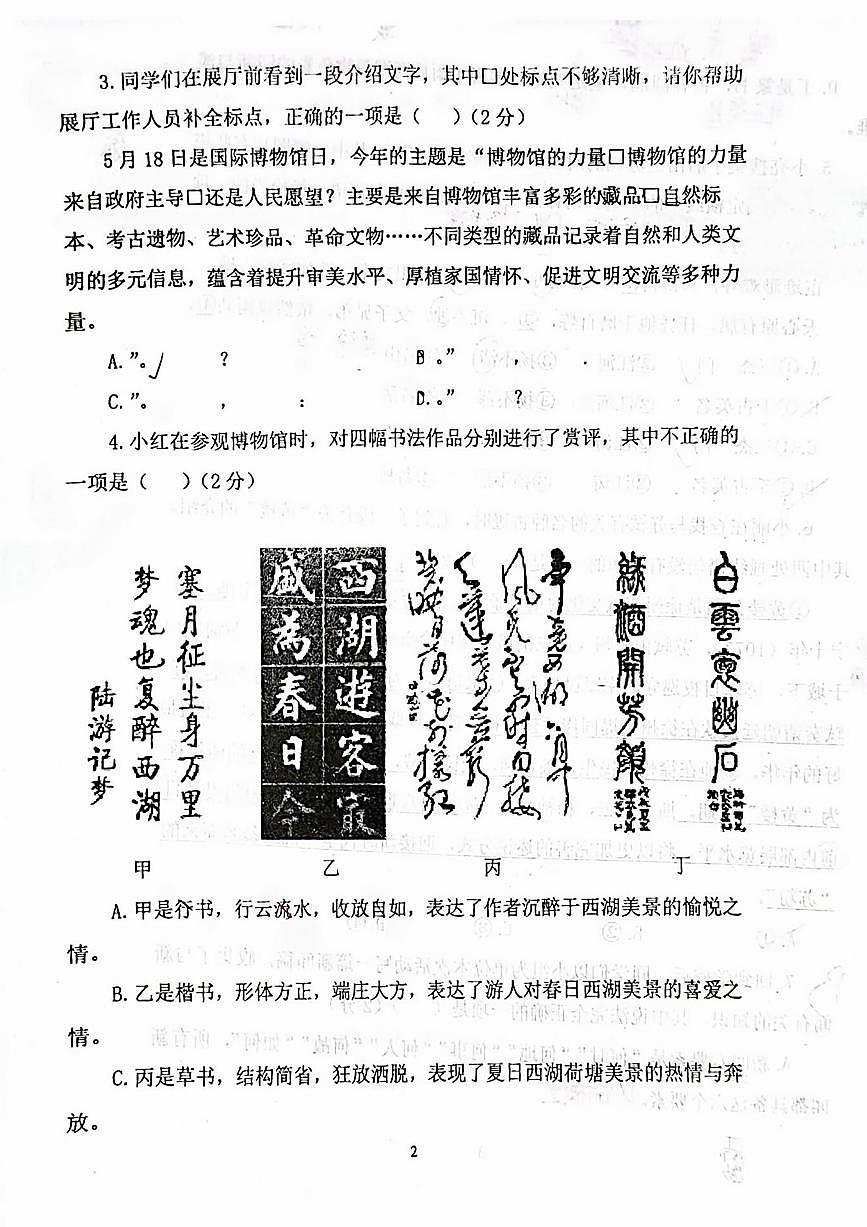 3.同学们在展厅前看到一段介绍文字，其中□处标点不够清晰，请你帮助
展厅工作人员补全标点，正确的一项是（　　）(2分)
5月18日是国际博物馆日，今年的主题是“博物馆的力量□博物馆的力量
来自政府主导□还是人民愿望？主要是来自博物馆丰富多彩的藏品□自然标
本、考古遗物、艺术珍品、革命文物……不同类型的藏品记录着自然和人类文
明的多元信息，蕴含着提升审美水平、厚植家国情怀、促进文明交流等多种力
量。
A.”。 ？ B 。” ，
C.”。 ， ： D.。” ？
4.小红在参观博物馆时，对四幅书法作品分别进行了赏评，其中不正确的
一项是（　　）(2分)
塞月征尘身万里
梦魂也复醉西湖
陆游记梦
西湖游客最
盛为春日今
毕竟西湖六月中
风光不与四时同
接天莲叶无穷碧
映日荷花别样红
白云窗幽石
绿酒开芳颜
甲 乙 丙 丁
A.甲是行书，行云流水，收放自如，表达了作者沉醉于西湖美景的愉悦之
情。
B.乙是楷书，形体方正，端庄大方，表达了游人对春日西湖美景的喜爱之
情。
C.丙是草书，结构简省，狂放洒脱，表现了夏日西湖荷塘美景的热情与奔
放。
2